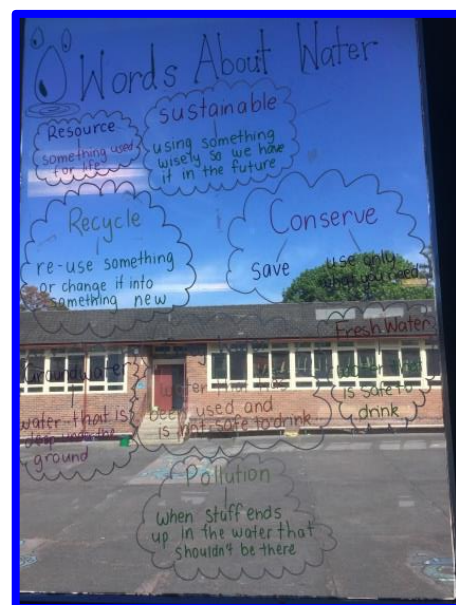 Words About Water
Resource
something used
for life
sustainable
using something
wisely so we have
it in the future
Recycle
re-use something
or change it into
something new
Conserve
save
use only
what you need
Groundwater
water that is
deep under the
ground
water that has
been used and
is not safe to drink
Fresh Water
water that
is safe to
drink
Pollution
when stuff ends
up in the water that
shouldn't be there